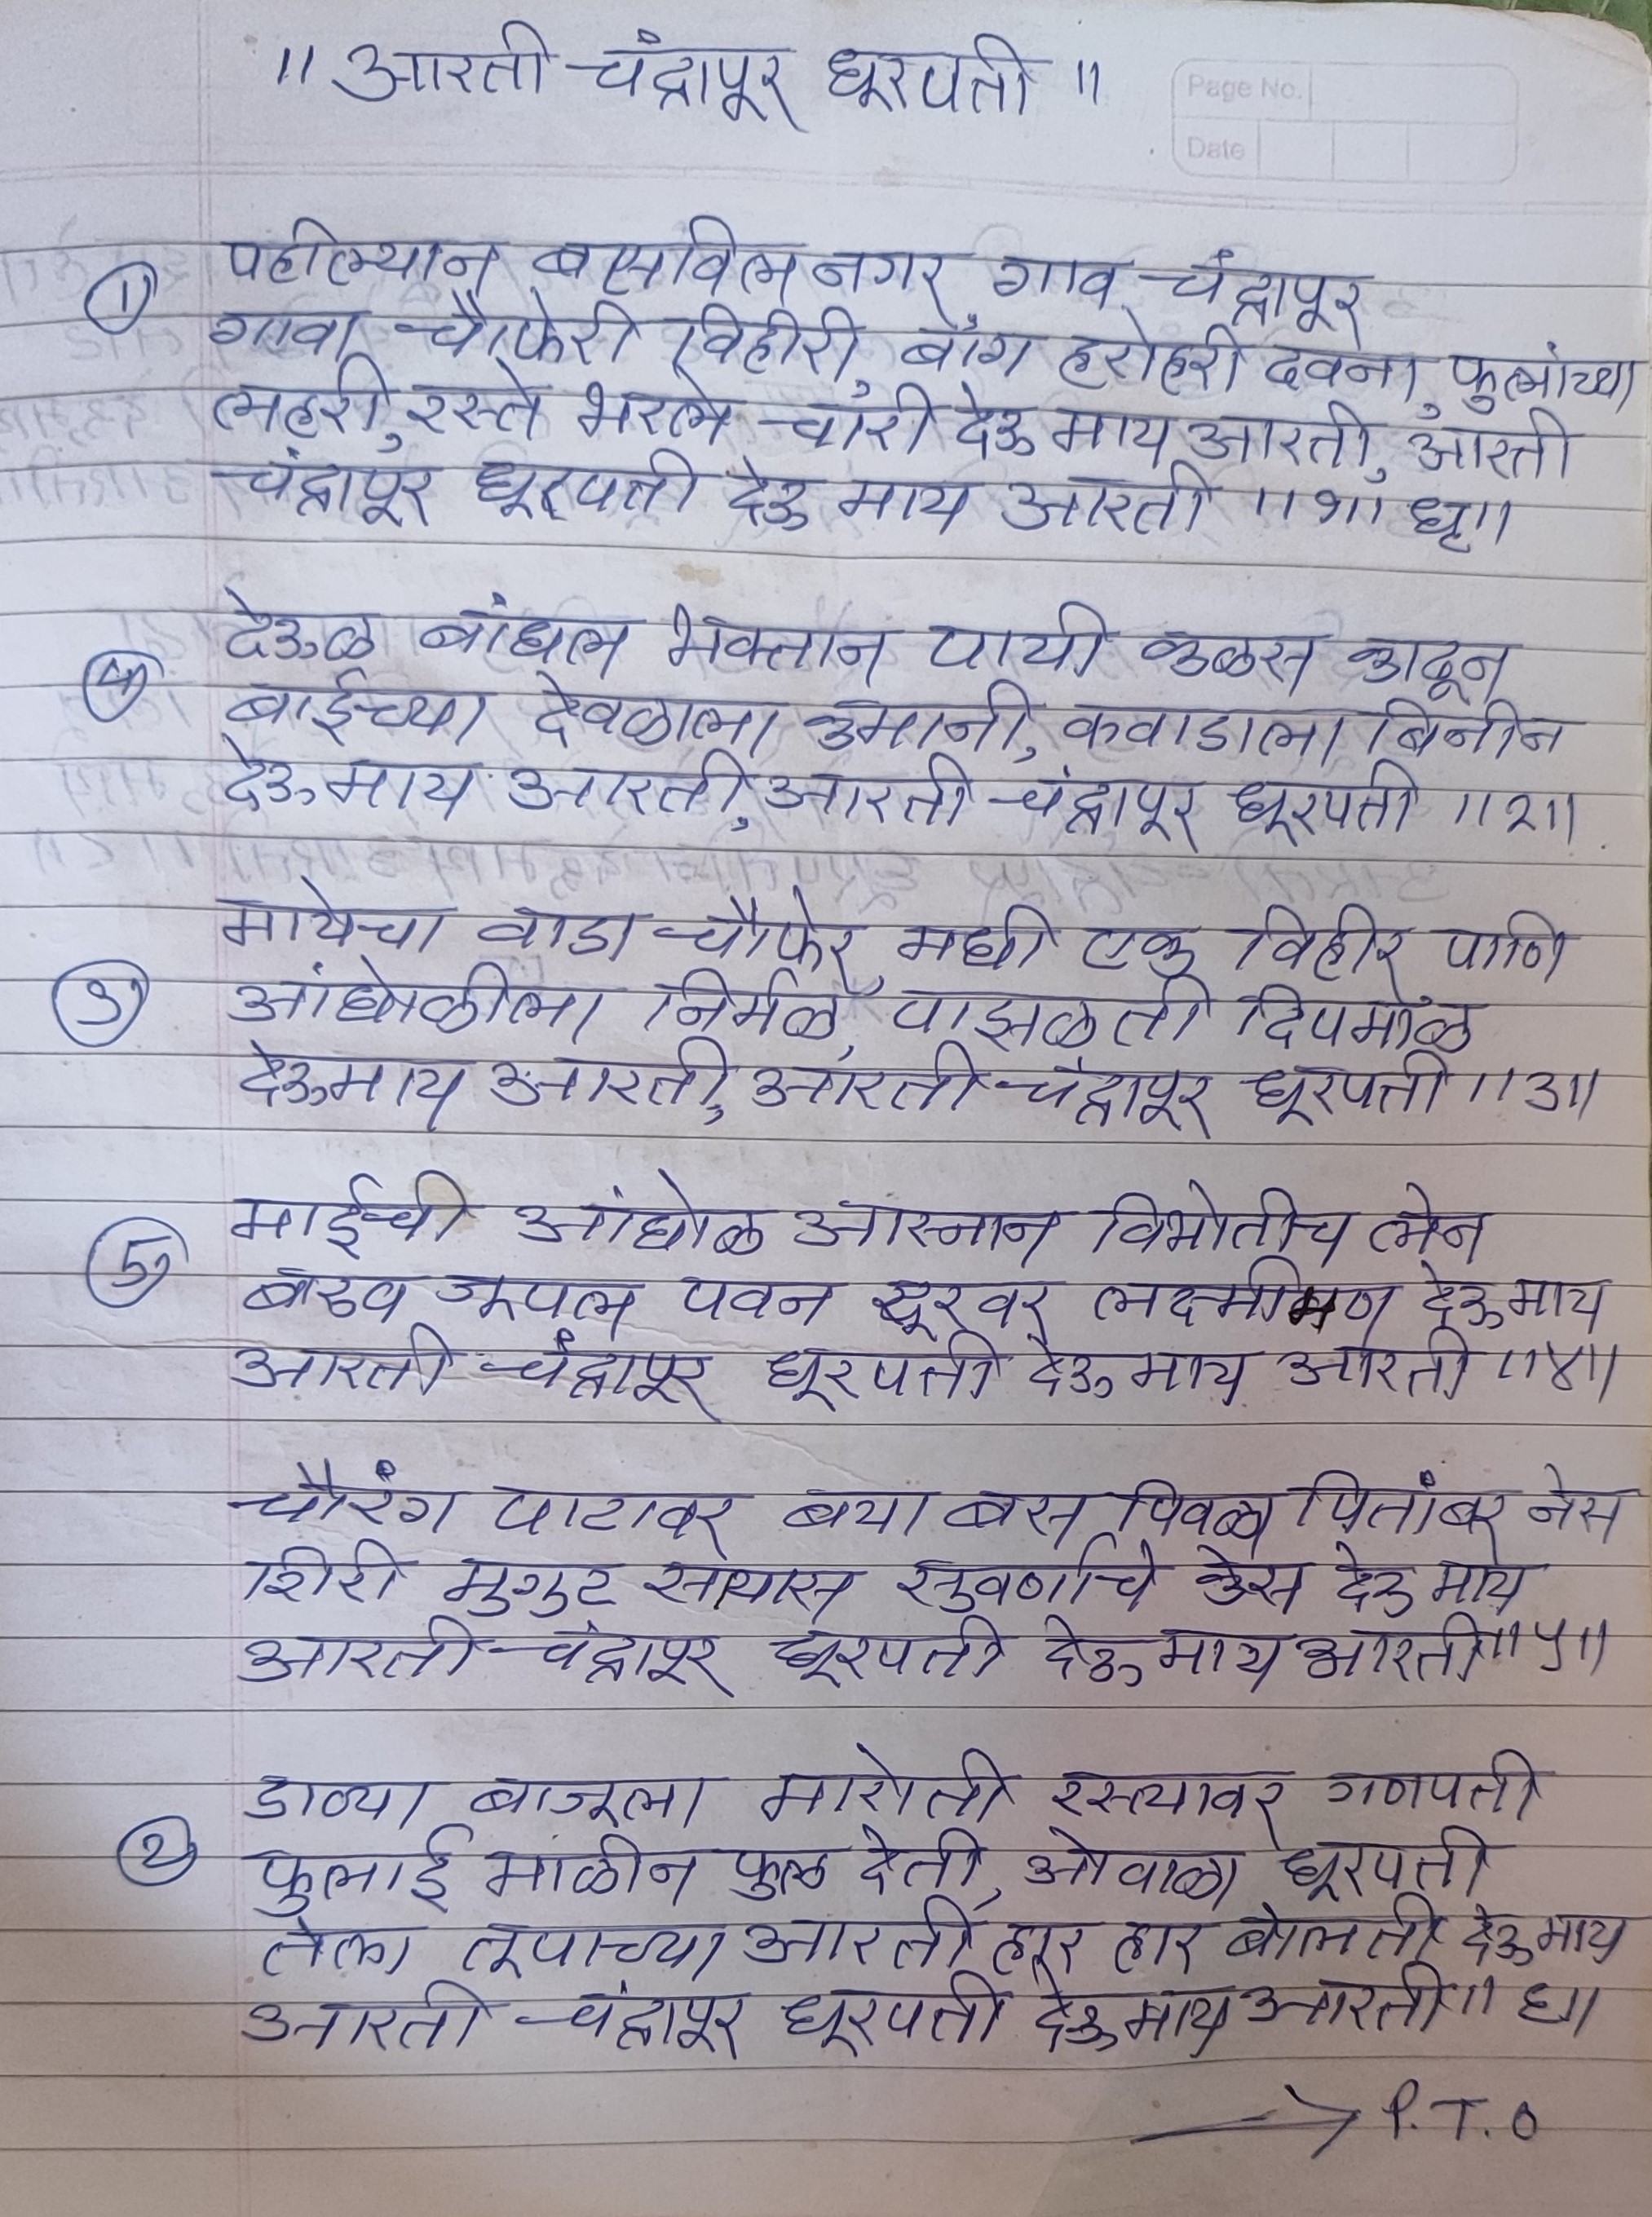 ॥ आरती चंद्रापूर धूरपती ॥
Page No.
Date
① पहील्यान वसविल नगर गाव चंद्रापूर
गावा चौफेरी विहीरी, बाग हरोहरी दवना, फुलांच्या
लहरी, रस्ते भरले चारी देऊ माय आरती, आरती
चंद्रापूर धूरपती देऊ माय आरती ॥१॥ धृ॥
④ देऊळ बांधल भक्तान पायी कळस काढून
बाईच्या देवळाला कमानी, कवाडाला बिनीन
देऊ माय आरती, आरती चंद्रापूर धूरपती ॥२॥
मायेचा वाडा चौफेर, मधी एक विहीर पाणि
③ आंघोळीला निर्मळ, पाझळती दिपमाळ
देऊ माय आरती, आरती चंद्रापूर धूरपती ॥३॥
माईची आंघोळ आस्नान विभोतीच लेन
⑤ बारव जूपल पवन सूरवर लक्ष्मीमण देऊ माय
आरती चंद्रापूर धूरपती देऊ माय आरती ॥४॥
चौरंग पाटावर बया बस पिवळा पितांबर नेस
शिरी मुगुट सायास सुवर्णाचे केस देऊ माय
आरती चंद्रापूर धूरपती देऊ माय आरती ॥५॥
डाव्या बाजूला मारोती रस्त्यावर गणपती
② फुलाई माळीन फुल देती, ओवाळा धूरपती
तेला तूपाच्या आरती हार हार बोलती देऊ माय
आरती चंद्रापूर धूरपती देऊ माय आरती ॥ ६॥
→ P.T.O